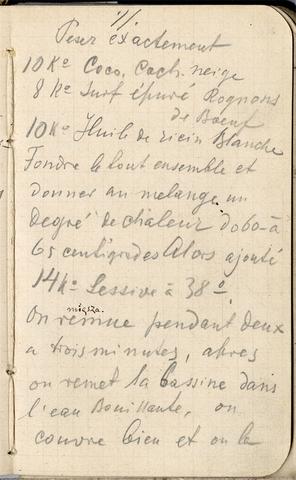 1/
Peser exactement
10 Ko Coco. Coch. neige
8 Ko Suif épuré Rognons
de Bœuf
10 Ko Huile de ricin Blanche
Fondre le tout ensemble et
donner au melange un
degré de chaleur do 60 à
65 centigrades Alors ajouté
14 Ko Lessive à 38°
miesza.
On remue pendant deux
a trois minutes, abres
on remet la bassine dans
l'eau Bouillante, on
couvre bien et on la